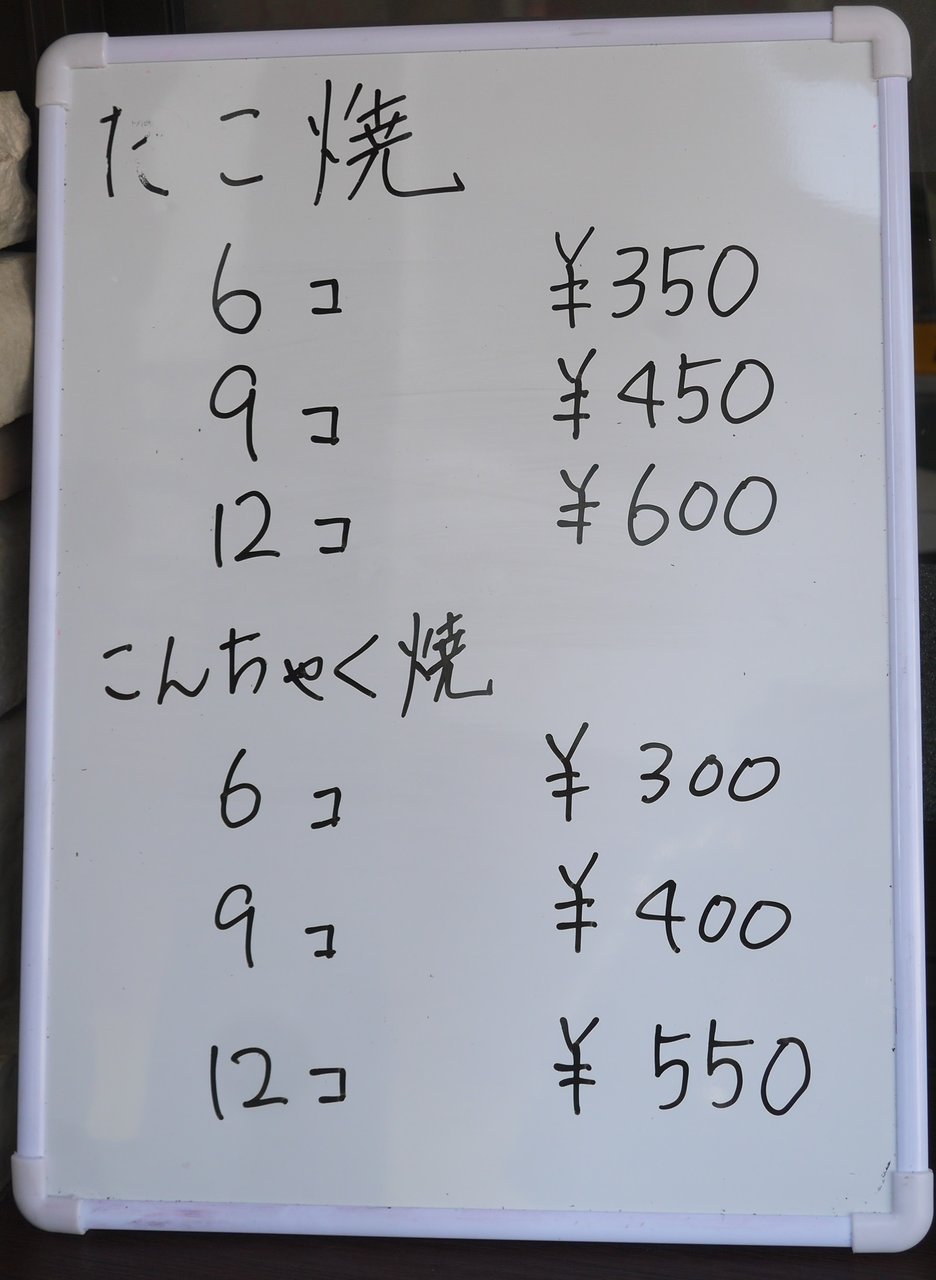 たこ焼
6コ ¥350
9コ ¥450
12コ ¥600
こんちゃく焼
6コ ¥300
9コ ¥400
12コ ¥550